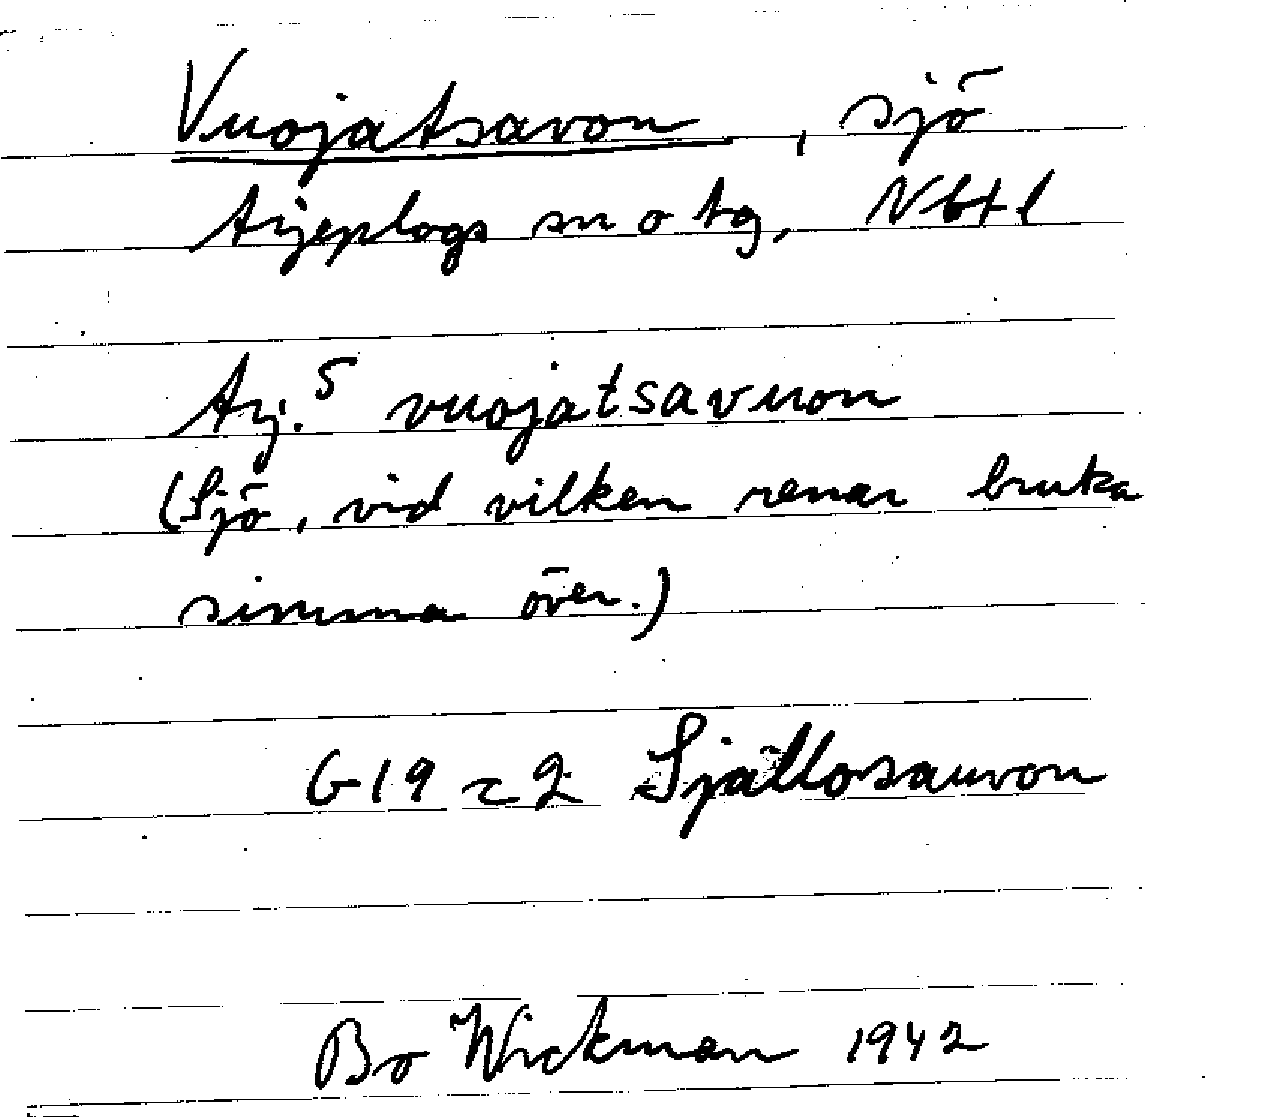 Vuojatsavon, sjö
Arjeplogs sn o tg, Nbtl
Arj.S vuojatsavuon
(Sjö, vid vilken renar bruka
simma över.)
G19 c2 Sjállosauvon
Bo Wickman 1942